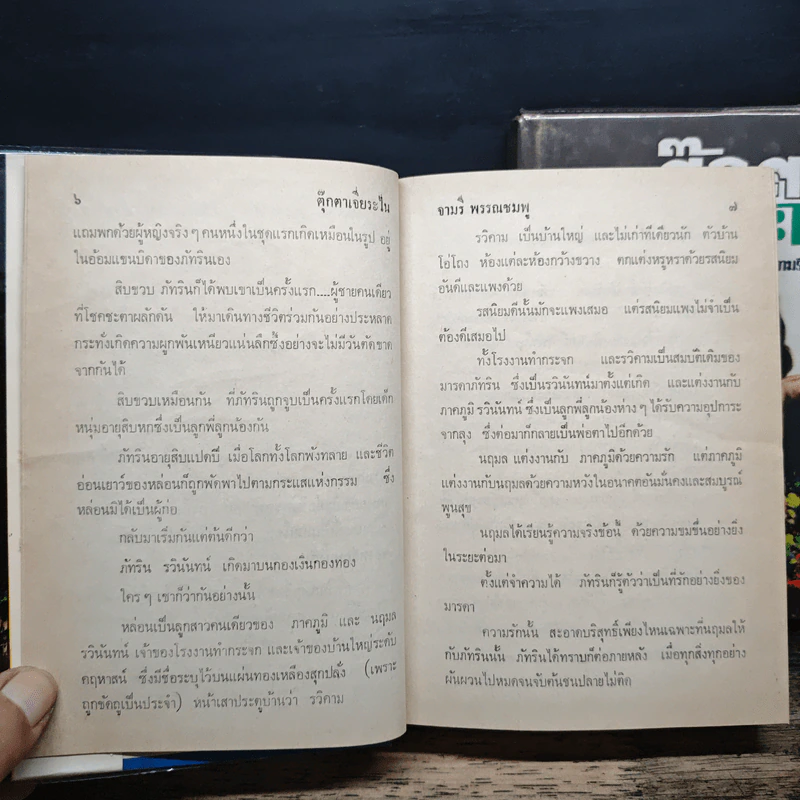 ๖ ตุ๊กตาเจียระไน
แถมพกด้วยผู้หญิงจริง ๆ คนหนึ่งในชุดแรกเกิดเหมือนในรูป อยู่
ในอ้อมแขนบิดาของภัทรินเอง
สิบขวบ ภัทรินก็ได้พบเขาเป็นครั้งแรก....ผู้ชายคนเดียว
ที่โชคชะตาผลักดัน ให้มาเดินทางชีวิตร่วมกันอย่างประหลาด
กระทั่งเกิดความผูกพันเหนียวแน่นลึกซึ้งอย่างจะไม่มีวันตัดขาด
จากกันได้
สิบขวบเหมือนกัน ที่ภัทรินถูกจูบเป็นครั้งแรกโดยเด็ก
หนุ่มอายุสิบหกซึ่งเป็นลูกพี่ลูกน้องกัน
ภัทรินอายุสิบแปดปี เมื่อโลกทั้งโลกพังทลาย และชีวิต
อ่อนเยาว์ของหล่อนก็ถูกพัดพาไปตามกระแสแห่งกรรม ซึ่ง
หล่อนมิได้เป็นผู้ก่อ
กลับมาเริ่มกันแต่ต้นดีกว่า
ภัทริน รวินันทน์ เกิดมาบนกองเงินกองทอง
ใคร ๆ เขาก็ว่ากันอย่างนั้น
หล่อนเป็นลูกสาวคนเดียวของ ภาคภูมิ และ นฤมล
รวินันทน์ เจ้าของโรงงานทำกระจก และเจ้าของบ้านใหญ่ระดับ
คฤหาสน์ ซึ่งมีชื่อระบุไว้บนแผ่นทองเหลืองสุกปลั่ง (เพราะ
ถูกขัดถูเป็นประจำ) หน้าเสาประตูบ้านว่า รวิคาม
จามรี พรรณชมพู ๗
รวิคาม เป็นบ้านใหญ่ และไม่เก่าทีเดียวนัก ตัวบ้าน
โอ่โถง ห้องแต่ละห้องกว้างขวาง ตกแต่งหรูหราด้วยรสนิยม
อันดีและแพงด้วย
รสนิยมดีนั้นมักจะแพงเสมอ แต่รสนิยมแพงไม่จำเป็น
ต้องดีเสมอไป
ทั้งโรงงานทำกระจก และรวิคามเป็นสมบัติเดิมของ
มารดาภัทริน ซึ่งเป็นรวินันทน์มาตั้งแต่เกิด และแต่งงานกับ
ภาคภูมิ รวินันทน์ ซึ่งเป็นลูกพี่ลูกน้องห่าง ๆ ได้รับความอุปการะ
จากลุง ซึ่งต่อมาก็กลายเป็นพ่อตาไปอีกด้วย
นฤมล แต่งงานกับ ภาคภูมิด้วยความรัก แต่ภาคภูมิ
แต่งงานกับนฤมลด้วยความหวังในอนาคตอันมั่นคงและสมบูรณ์
พูนสุข
นฤมลได้เรียนรู้ความจริงข้อนี้ ด้วยความขมขื่นอย่างยิ่ง
ในระยะต่อมา
ตั้งแต่จำความได้ ภัทรินก็รู้ตัวว่าเป็นที่รักอย่างยิ่งของ
มารดา
ความรักนั้น สะอาดบริสุทธิ์เพียงไหนเฉพาะที่นฤมลให้
กับภัทรินนั้น ภัทรินได้ทราบก็ต่อภายหลัง เมื่อทุกสิ่งทุกอย่าง
ผันผวนไปหมดจนจับต้นชนปลายไม่ติด